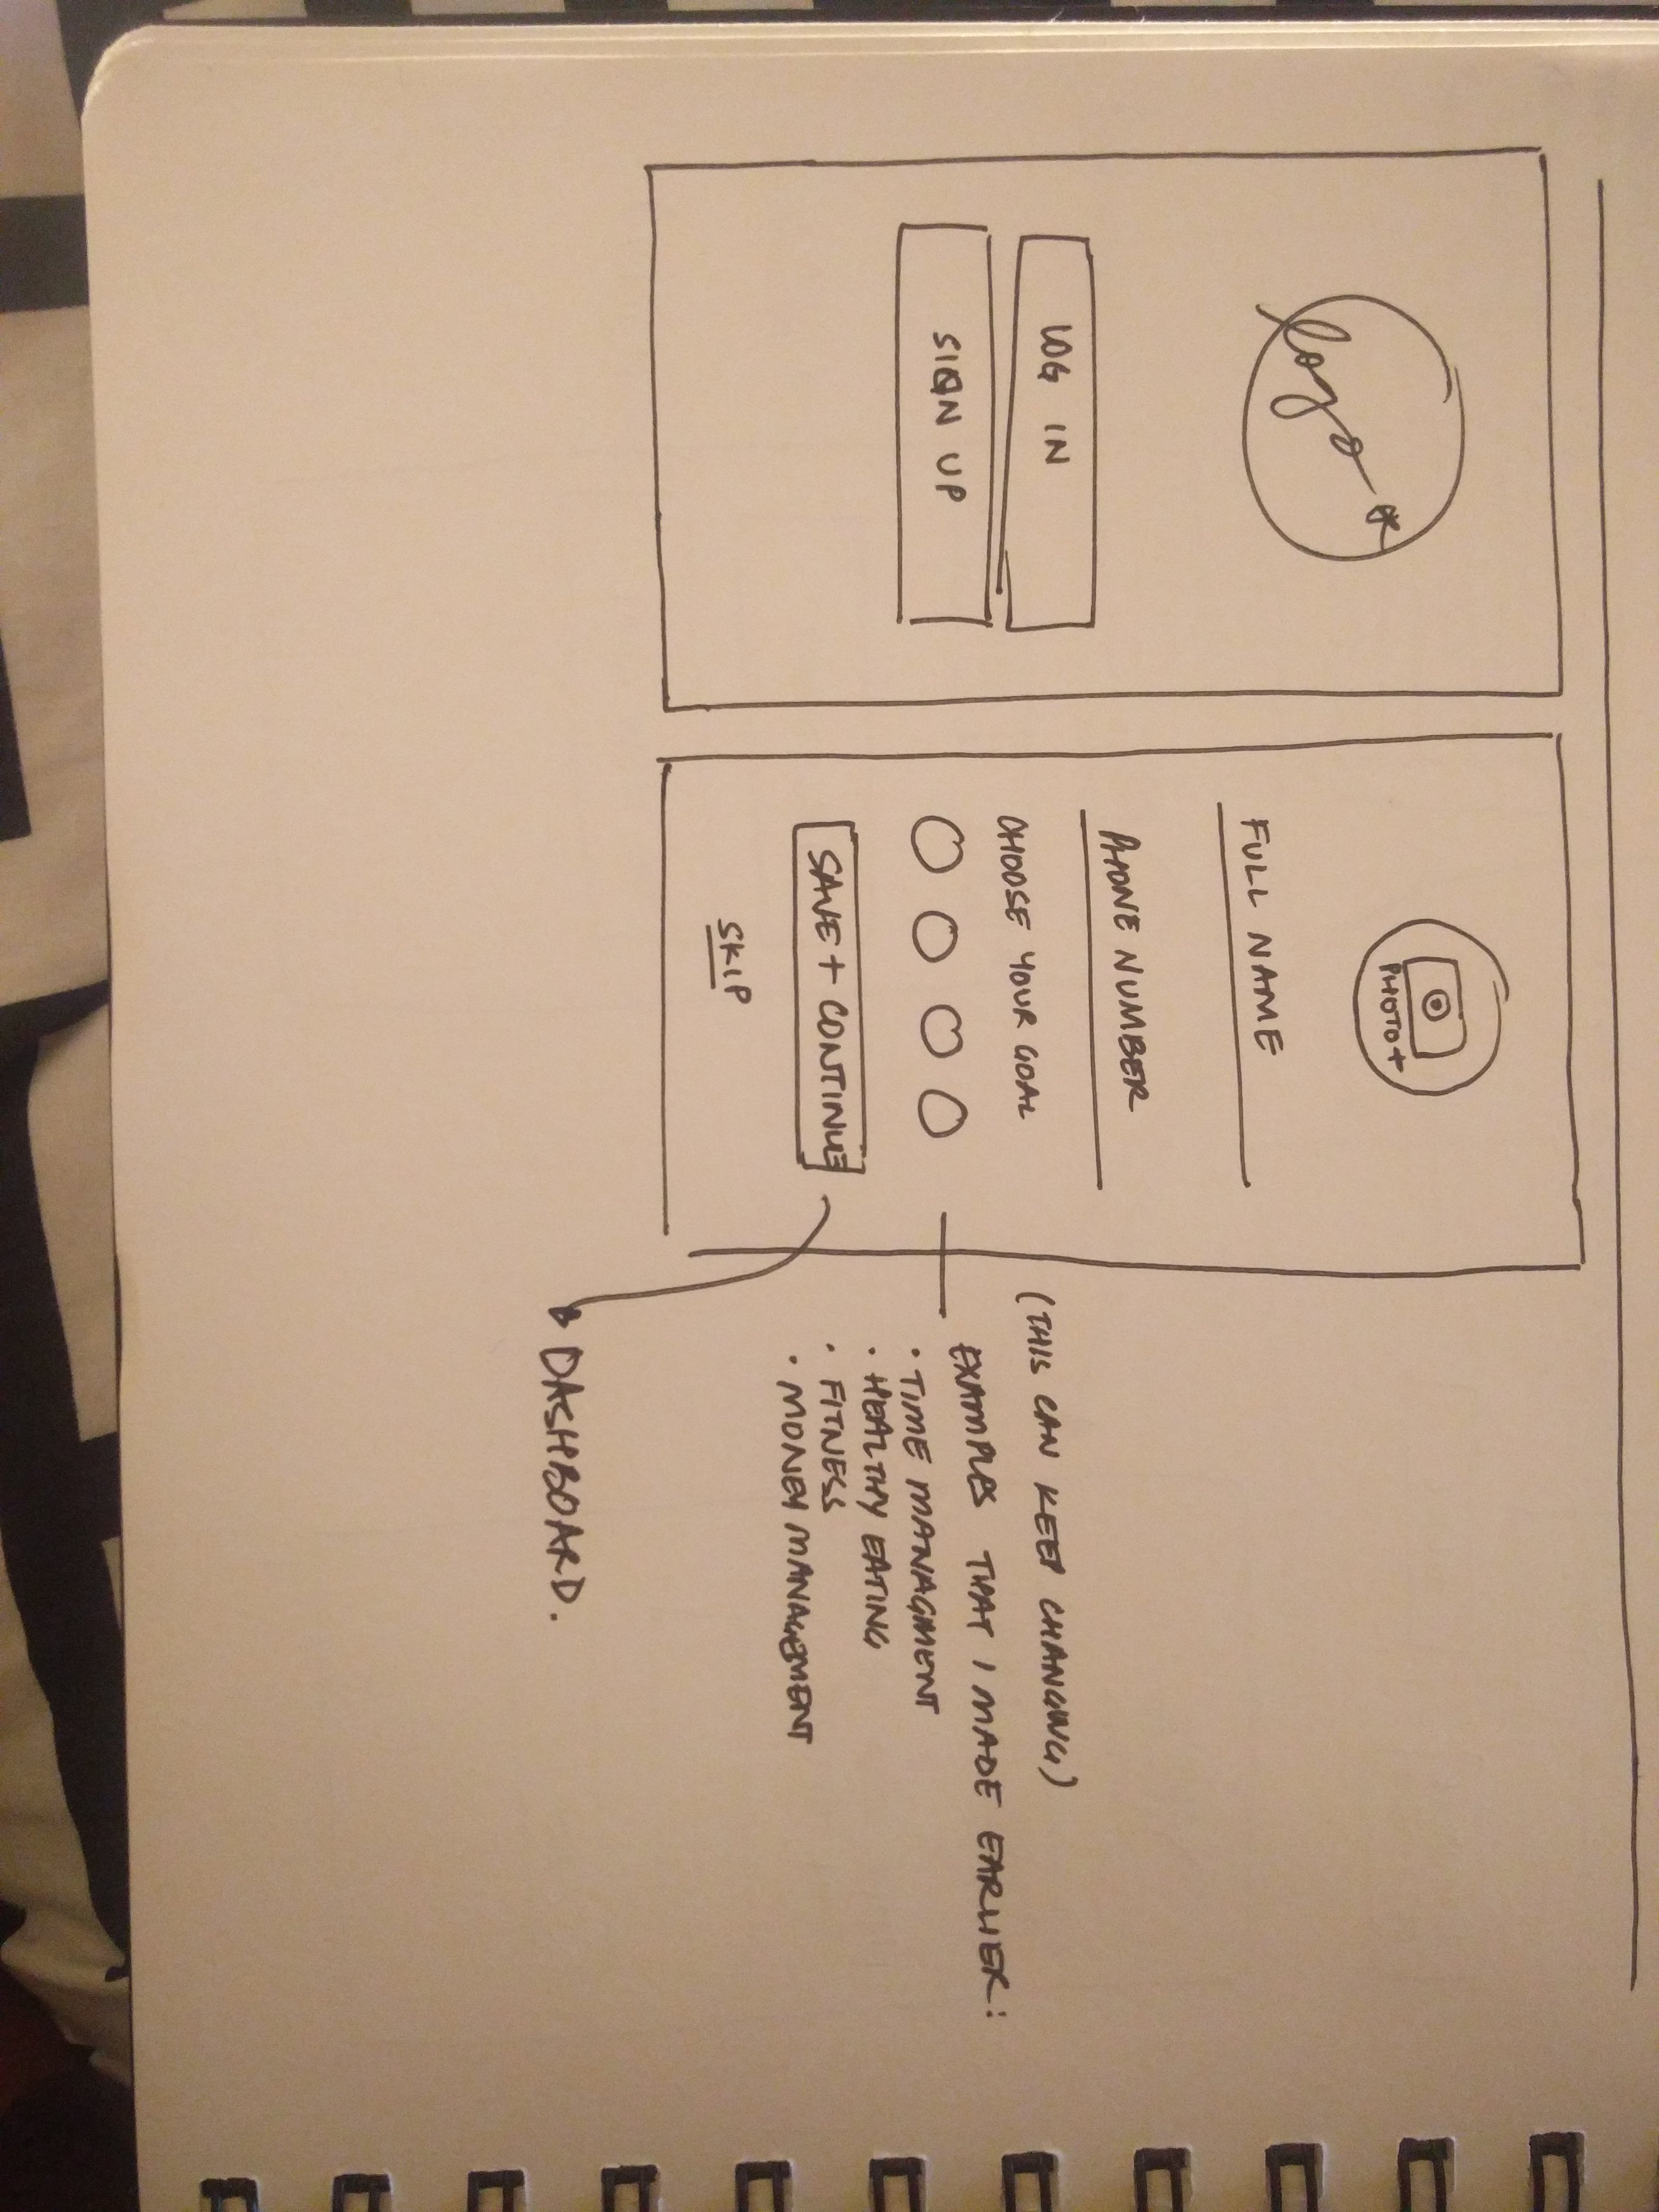 logo
LOG IN
SIGN UP
PHOTO+
FULL NAME
PHONE NUMBER
CHOOSE YOUR GOAL
SAVE + CONTINUE
SKIP
(THIS CAN KEEP CHANGING)
EXAMPLES THAT I MADE EARLIER:
• TIME MANAGMENT
• HEALTHY EATING
• FITNESS
• MONEY MANAGEMENT
DASHBOARD.